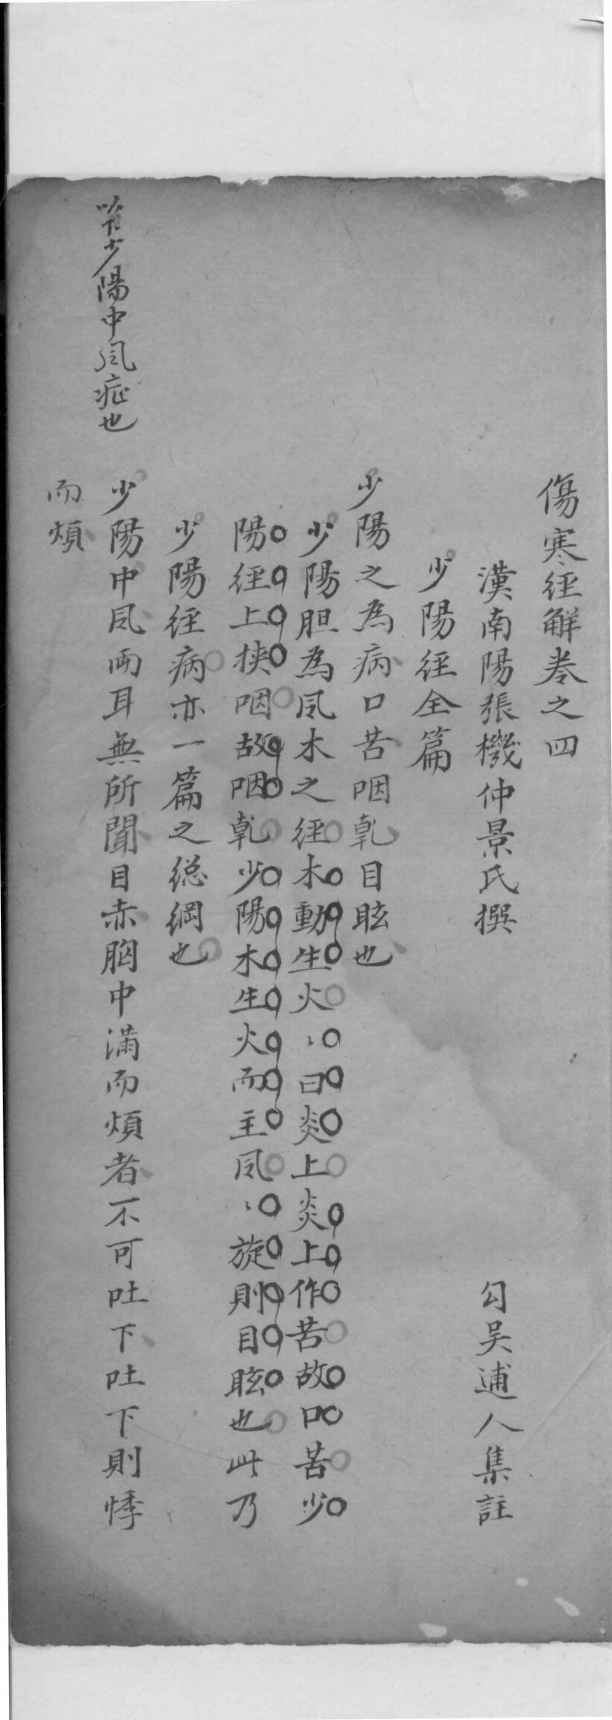 傷寒経觧卷之四
漢南陽張機仲景氏撰
勾吴逋人集註
少陽経全篇
少陽之為病口苦咽乹目眩也
少陽胆為凨木之経木動生火〻曰炎上炎上作苦故口苦少
陽経上挟咽故咽乹少陽木生火而主凨〻旋則目眩也此乃
少陽経病亦一篇之緫綱也
少陽中凨両耳無所聞目赤胸中满而煩者不可吐下吐下則悸
而煩
少陽中凨症也